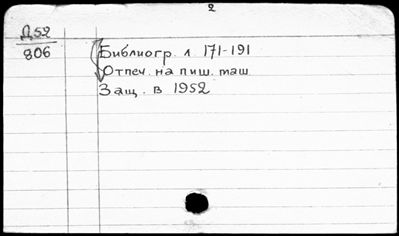 2
Д52
806
Библиогр. л. 171-191
Отпеч. на пиш. маш.
Защ. в 1952